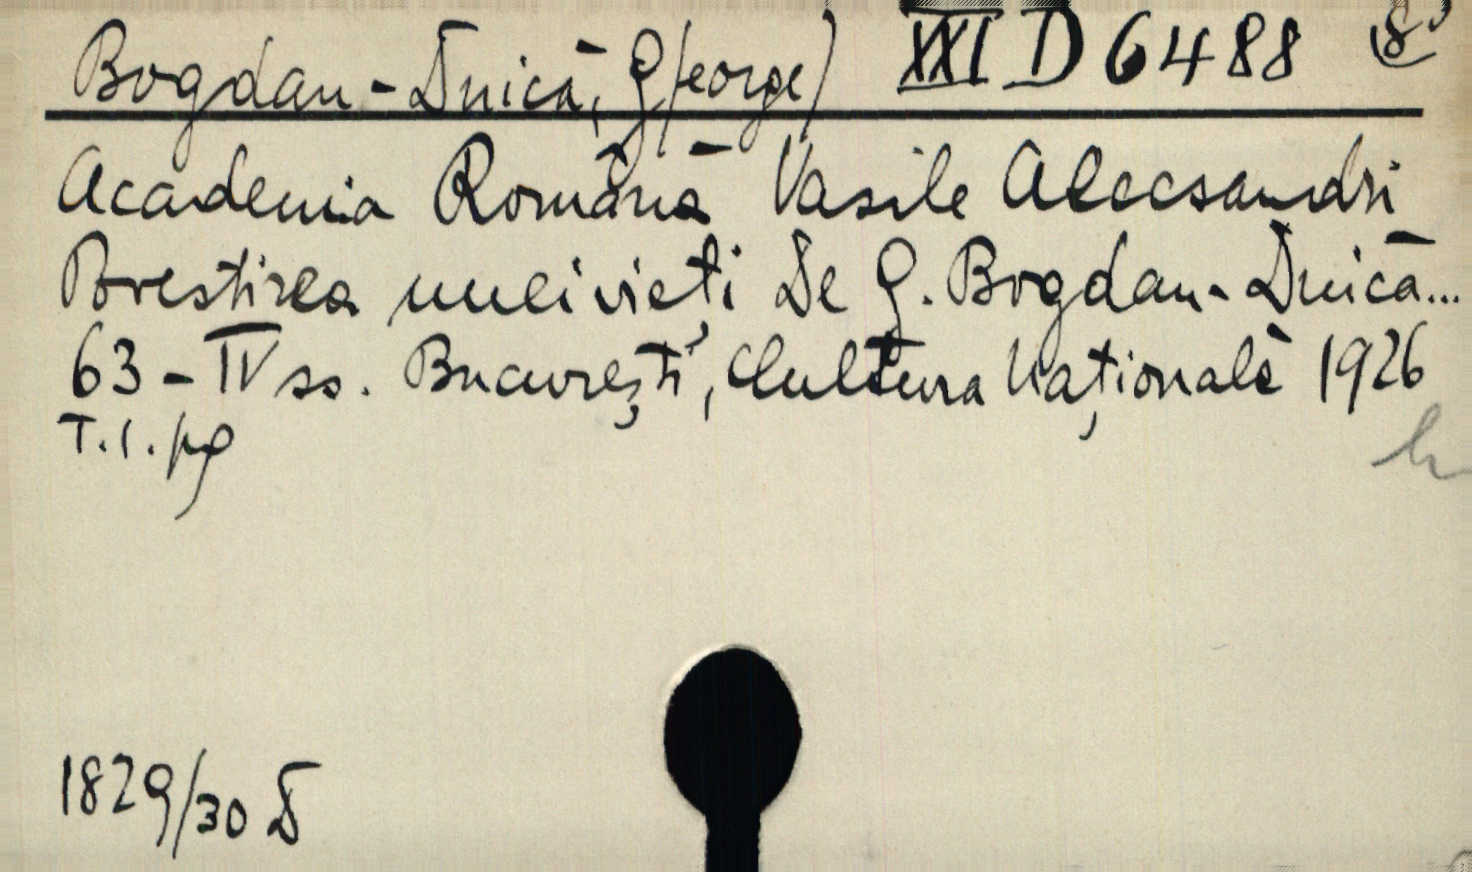 Bogdan-Duică, G/eorge) XXI D 6488
Academia Română Vasile Alecsandri
Povestirea unei vieți De G. Bogdan-Duică...
63-IV ss. București, Cultura Națională 1926
T.I. pg
1829/30 D